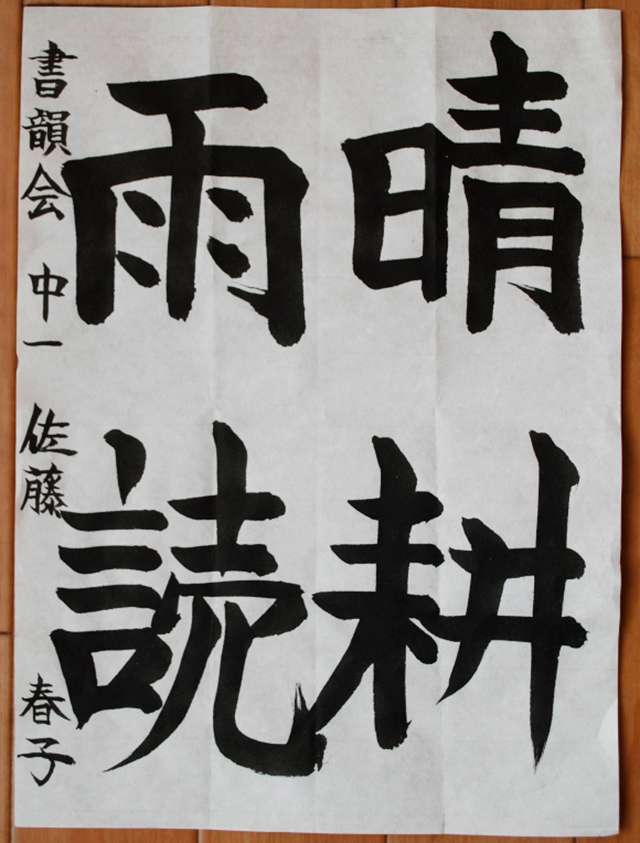 晴耕
雨読
書韻会 中一 佐藤 春子